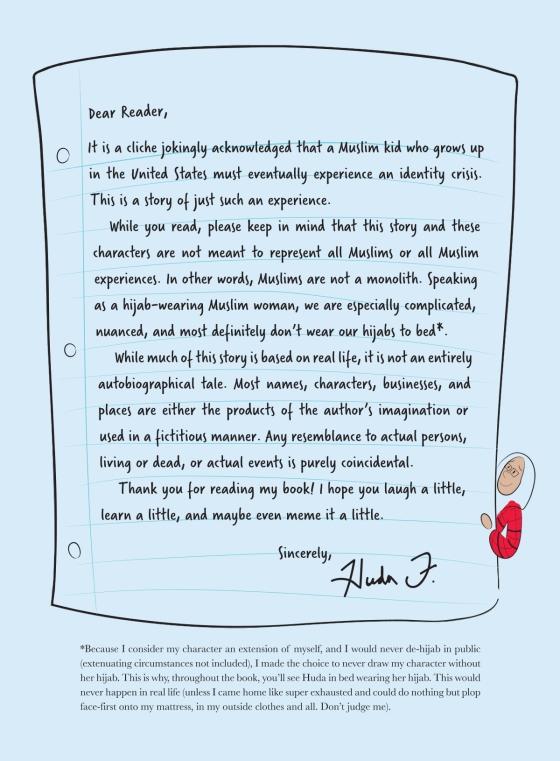 Dear Reader,
It is a cliche jokingly acknowledged that a Muslim kid who grows up
in the United States must eventually experience an identity crisis.
This is a story of just such an experience.
While you read, please keep in mind that this story and these
characters are not meant to represent all Muslims or all Muslim
experiences. In other words, Muslims are not a monolith. Speaking
as a hijab-wearing Muslim woman, we are especially complicated,
nuanced, and most definitely don't wear our hijabs to bed*.
While much of this story is based on real life, it is not an entirely
autobiographical tale. Most names, characters, businesses, and
places are either the products of the author's imagination or
used in a fictitious manner. Any resemblance to actual persons,
living or dead, or actual events is purely coincidental.
Thank you for reading my book! I hope you laugh a little,
learn a little, and maybe even meme it a little.
Sincerely,
Huda F.
*Because I consider my character an extension of myself, and I would never de-hijab in public
(extenuating circumstances not included), I made the choice to never draw my character without
her hijab. This is why, throughout the book, you'll see Huda in bed wearing her hijab. This would
never happen in real life (unless I came home like super exhausted and could do nothing but plop
face-first onto my mattress, in my outside clothes and all. Don't judge me).